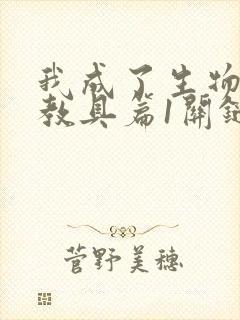 我成了生物
教具篇1關鍵
菅野美穗